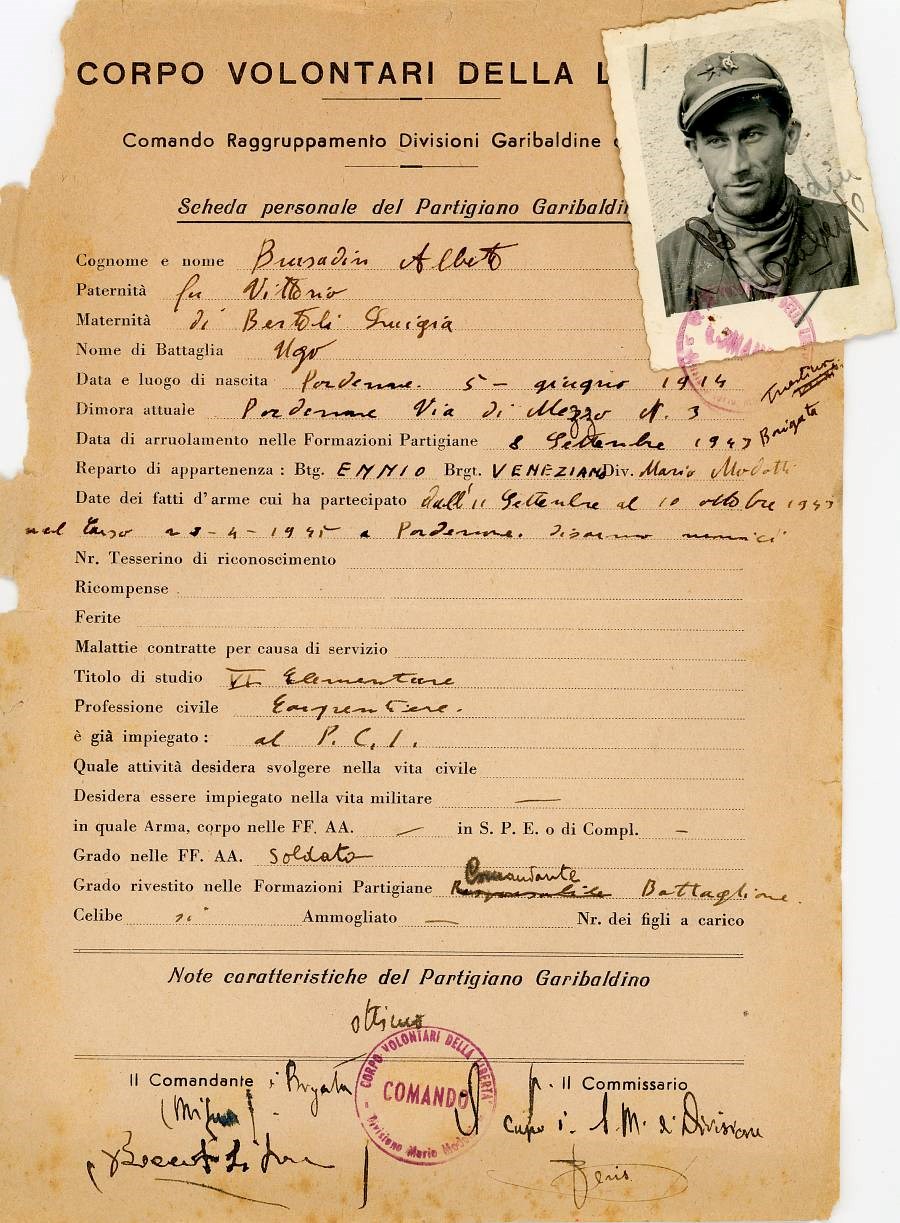 CORPO VOLONTARI DELLA L
Comando Raggruppamento Divisioni Garibaldine
Scheda personale del Partigiano Garibaldin
Cognome e nome Brusadin Alberto
Paternità fu Vittorio
Maternità di Bertoli Luigia
Nome di Battaglia Ugo
Data e luogo di nascita Pordenone. 5 - giugno 1914
Dimora attuale Pordenone Via di Mezzo N. 3
Brigata
Data di arruolamento nelle Formazioni Partigiane 8 Settembre 1943
Reparto di appartenenza : Btg. ENNIO Brgt. VENEZIANO Div. Mario Modotti
Date dei fatti d'arme cui ha partecipato dall'11 Settembre al 10 ottobre 1943
nel Carso 28-4-1945 a Pordenone. Disarmo nemici
Nr. Tesserino di riconoscimento
Ricompense
Ferite
Malattie contratte per causa di servizio
Titolo di studio VI Elementare
Professione civile Carpentiere.
è già impiegato : al P.C.I.
Quale attività desidera svolgere nella vita civile
Desidera essere impiegato nella vita militare —
in quale Arma, corpo nelle FF. AA. — in S. P. E. o di Compl. —
Grado nelle FF. AA. Soldato
Comandante
Grado rivestito nelle Formazioni Partigiane Responsabile Battaglione.
Celibe si Ammogliato — Nr. dei figli a carico
Note caratteristiche del Partigiano Garibaldino
ottimo
CORPO VOLONTARI DELLA LIBERTA'
COMANDO
Divisione Mario Mod
Il Comandante Brigata
p. Il Commissario
Capo S. M. di Divisione